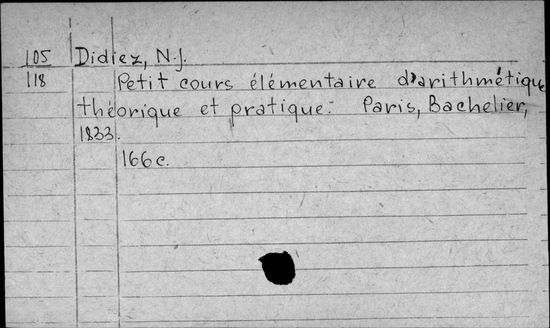 105 Didiez, N.-J.
118 Petit cours élémentaire d'arithmétique
théorique et pratique. Paris, Bachelier,
1833.
166 c.